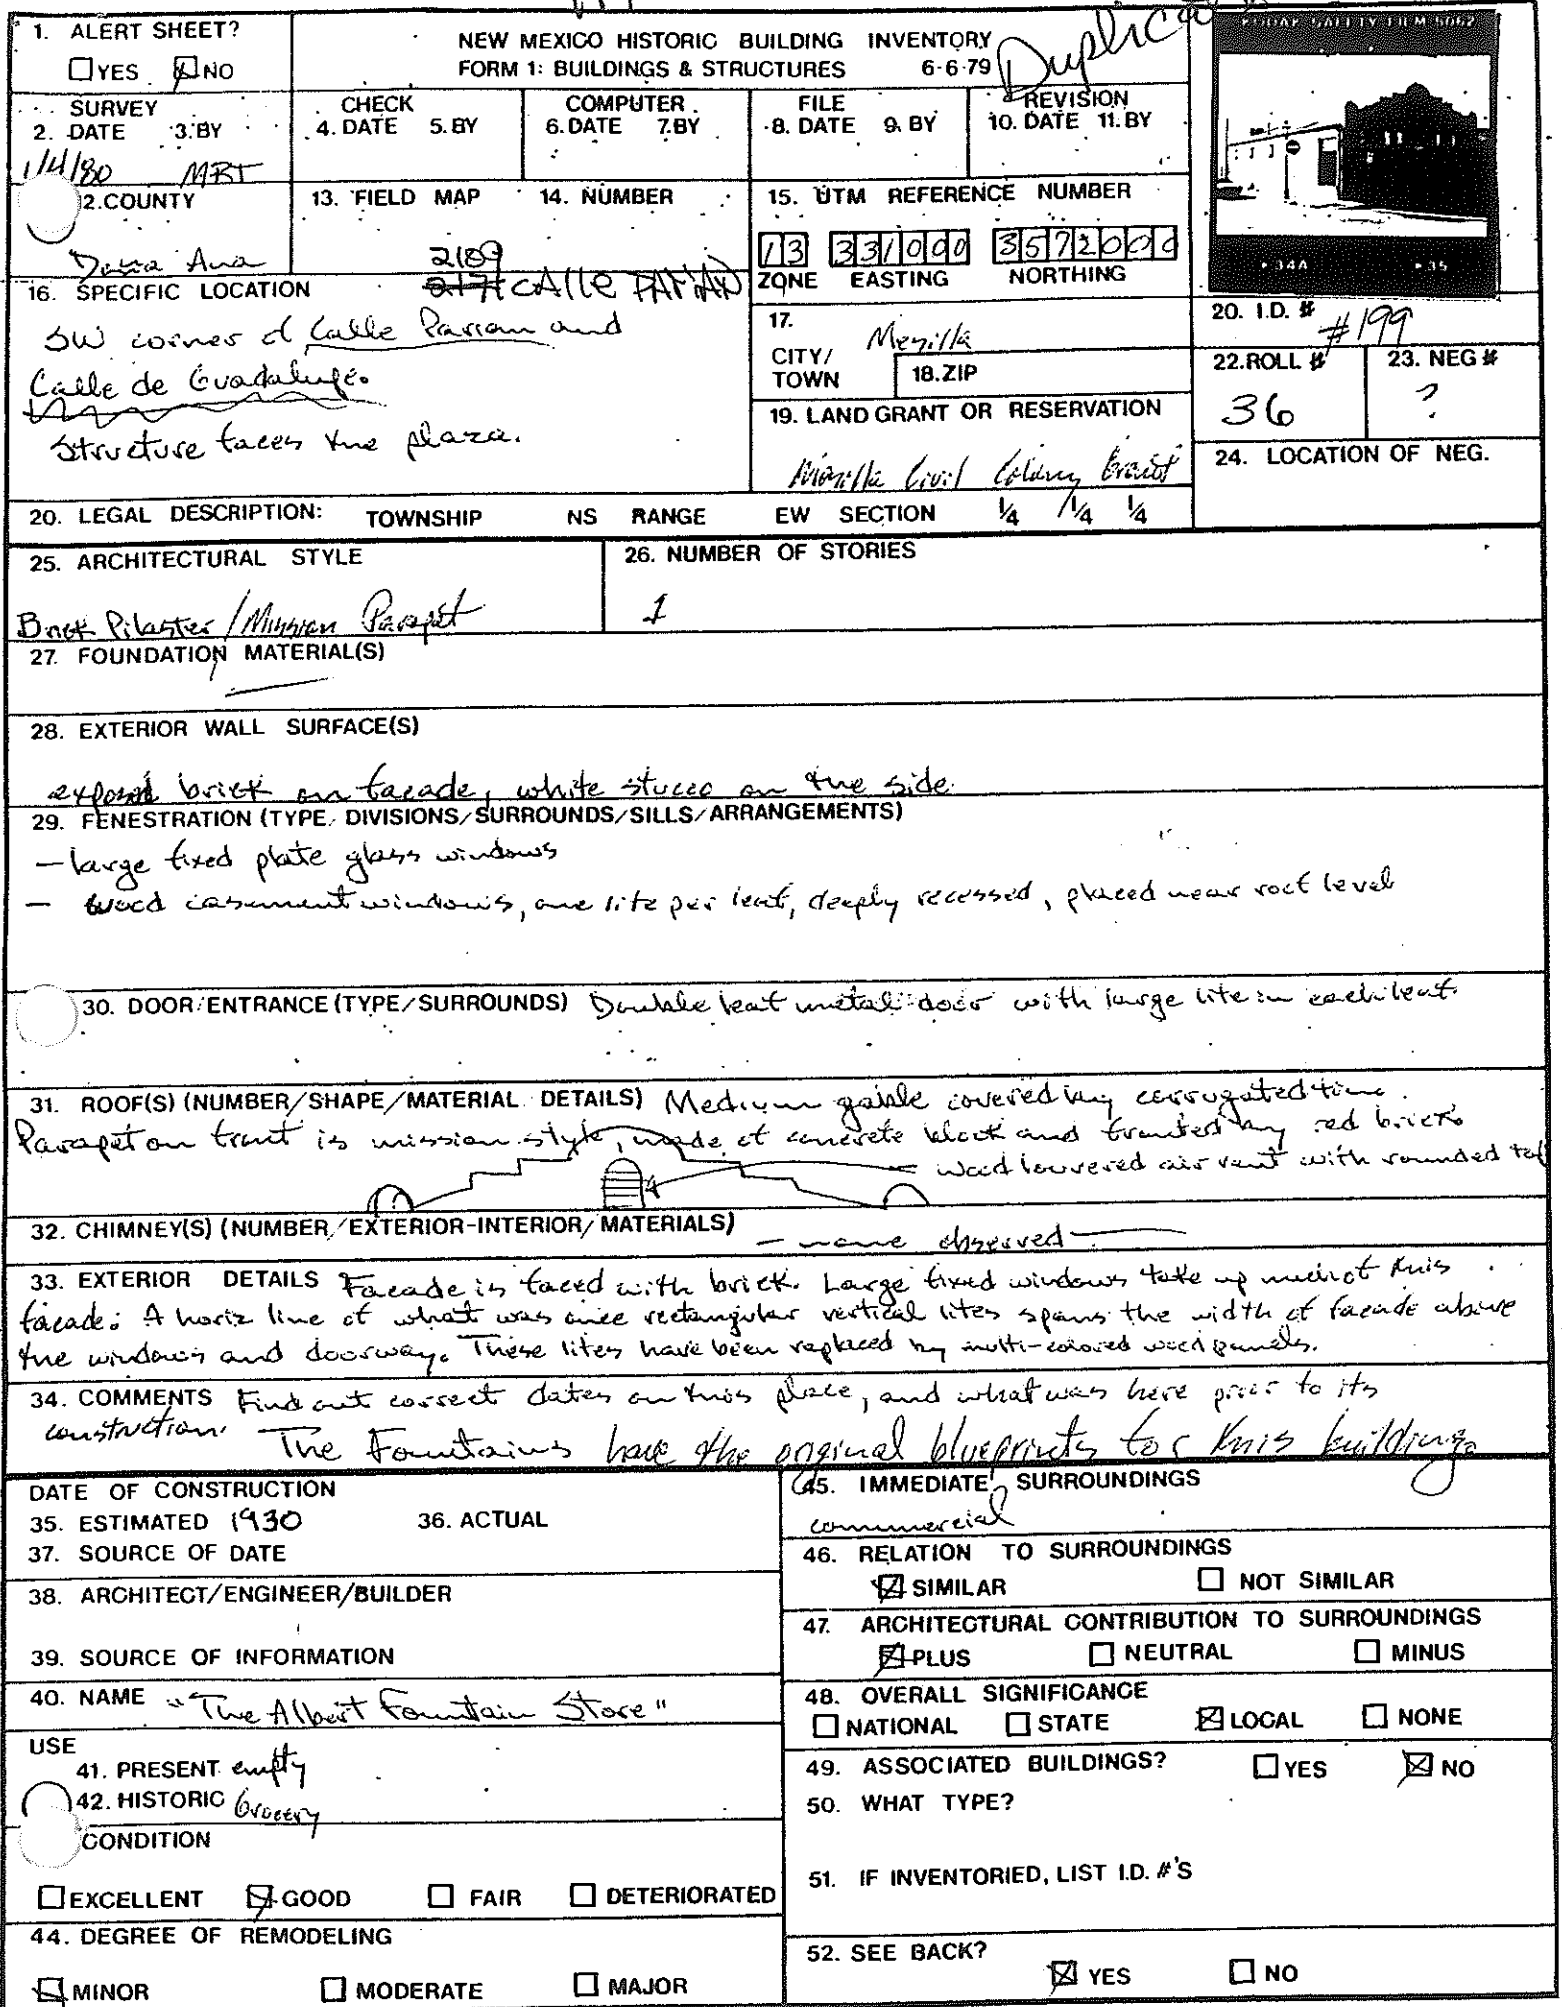 Duplicate
1. ALERT SHEET?
☐YES ☒NO
NEW MEXICO HISTORIC BUILDING INVENTORY
FORM 1: BUILDINGS & STRUCTURES 6-6-79
KODAK SAFETY FILM 5062
SURVEY
2. DATE 3. BY
1/4/80 MBT
CHECK
4. DATE 5. BY
COMPUTER
6. DATE 7. BY
FILE
8. DATE 9. BY
REVISION
10. DATE 11. BY
2. COUNTY
Doña Ana
13. FIELD MAP
14. NUMBER
15. UTM REFERENCE NUMBER
13 331000 3572000
ZONE EASTING NORTHING
34A 35
16. SPECIFIC LOCATION
2189
2171 CALLE PARIAN
SW corner of Calle Parian and
Calle de Guadalupe.
Structure faces the plaza.
17. CITY/TOWN Mesilla
18. ZIP
19. LAND GRANT OR RESERVATION
Mesilla Civil Colony Grant
20. I.D. # #199
22. ROLL # 36
23. NEG # ?
24. LOCATION OF NEG.
20. LEGAL DESCRIPTION: TOWNSHIP NS RANGE EW SECTION ¼ /¼ ¼
25. ARCHITECTURAL STYLE
Brick Pilaster/Mission Parapet
26. NUMBER OF STORIES
1
27. FOUNDATION MATERIAL(S)
—
28. EXTERIOR WALL SURFACE(S)
exposed brick on facade, white stucco on the side.
29. FENESTRATION (TYPE/DIVISIONS/SURROUNDS/SILLS/ARRANGEMENTS)
— large fixed plate glass windows
— wood casement windows, one lite per leaf, deeply recessed, placed near roof level
30. DOOR/ENTRANCE (TYPE/SURROUNDS) Double leaf metal door with large lite in each leaf.
31. ROOF(S) (NUMBER/SHAPE/MATERIAL DETAILS) Medium gable covered by corrugated tin.
Parapet on front is mission style, made of concrete block and fronted by red brick
wood louvered air vent with rounded top
32. CHIMNEY(S) (NUMBER/EXTERIOR-INTERIOR/MATERIALS) — none observed —
33. EXTERIOR DETAILS Facade is faced with brick. Large fixed windows take up much of this
facade. A horiz line of what was once rectangular vertical lites spans the width of facade above
the windows and doorway. These lites have been replaced by multi-colored wood panels.
34. COMMENTS Find out correct dates on this place, and what was here prior to its
construction. The Fountains have the original blueprints for this building.
DATE OF CONSTRUCTION
35. ESTIMATED 1930 36. ACTUAL
37. SOURCE OF DATE
38. ARCHITECT/ENGINEER/BUILDER
39. SOURCE OF INFORMATION
40. NAME "The Albert Fountain Store"
USE
41. PRESENT empty
42. HISTORIC Grocery
CONDITION
☐EXCELLENT ☒GOOD ☐ FAIR ☐ DETERIORATED
44. DEGREE OF REMODELING
☒MINOR ☐ MODERATE ☐ MAJOR
45. IMMEDIATE SURROUNDINGS
commercial
46. RELATION TO SURROUNDINGS
☒SIMILAR ☐ NOT SIMILAR
47. ARCHITECTURAL CONTRIBUTION TO SURROUNDINGS
☒PLUS ☐ NEUTRAL ☐ MINUS
48. OVERALL SIGNIFICANCE
☐NATIONAL ☐STATE ☒LOCAL ☐ NONE
49. ASSOCIATED BUILDINGS? ☐YES ☒NO
50. WHAT TYPE?
51. IF INVENTORIED, LIST I.D. #'S
52. SEE BACK?
☒ YES ☐ NO